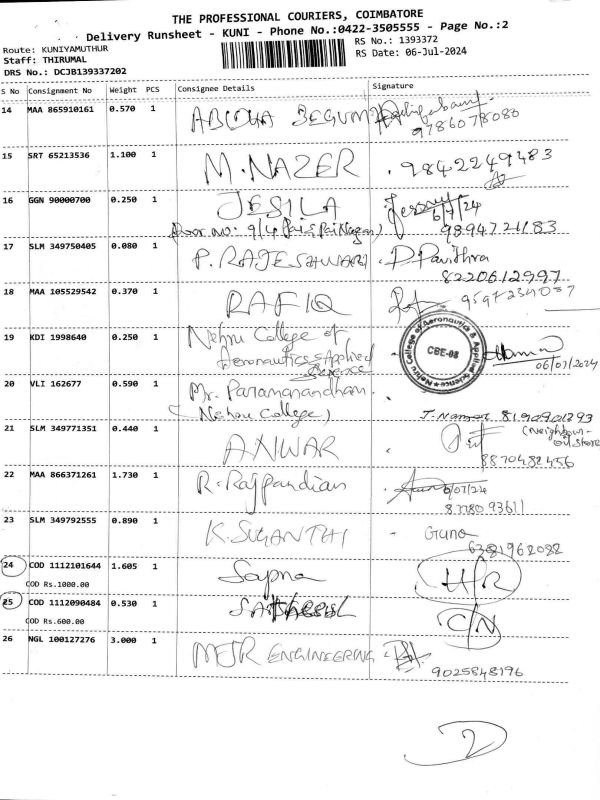 THE PROFESSIONAL COURIERS, COIMBATORE
Delivery Runsheet - KUNI - Phone No.:0422-3505555 - Page No.:2
Route: KUNIYAMUTHUR
RS No.: 1393372
Staff: THIRUMAL
RS Date: 06-Jul-2024
DRS No.: DCJB139337202
S No Consignment No Weight PCS Consignee Details Signature
14 MAA 865910161 0.570 1 BEGUM
9786078080
15 SRT 65213536 1.100 1 M.NAZER 9842249483
16 GGN 90000700 0.250 1 JESILA 6/7/24
(Door.no: 9/4 Nagar) 9894721183
17 SLM 349750405 0.080 1 P. RAJESHWARI P. Pavithra
8220612997
18 MAA 105529542 0.370 1 RAFIQ
19 KDI 1998640 0.250 1 Nehru College of
Aeronautics & Applied
Science
Nehru College of Aeronautics & Applied Science
CBE-08
06/07/2024
20 VLI 162677 0.590 1 Mr. Paramanandham
(Nehru College)
21 SLM 349771351 0.440 1 ANWAR (Neighbour-
oil store
8870482456
22 MAA 866371261 1.730 1 R. Rajpandian 6/07/24
23 SLM 349792555 0.890 1 K. SUGANTHI - Guna
6381962082
24 COD 1112101644 1.605 1 Sapna H/R
COD Rs.1000.00
25 COD 1112090484 0.530 1 C/N
COD Rs.600.00
26 NGL 100127276 3.000 1 MJR ENGINEERING
9025848196
2